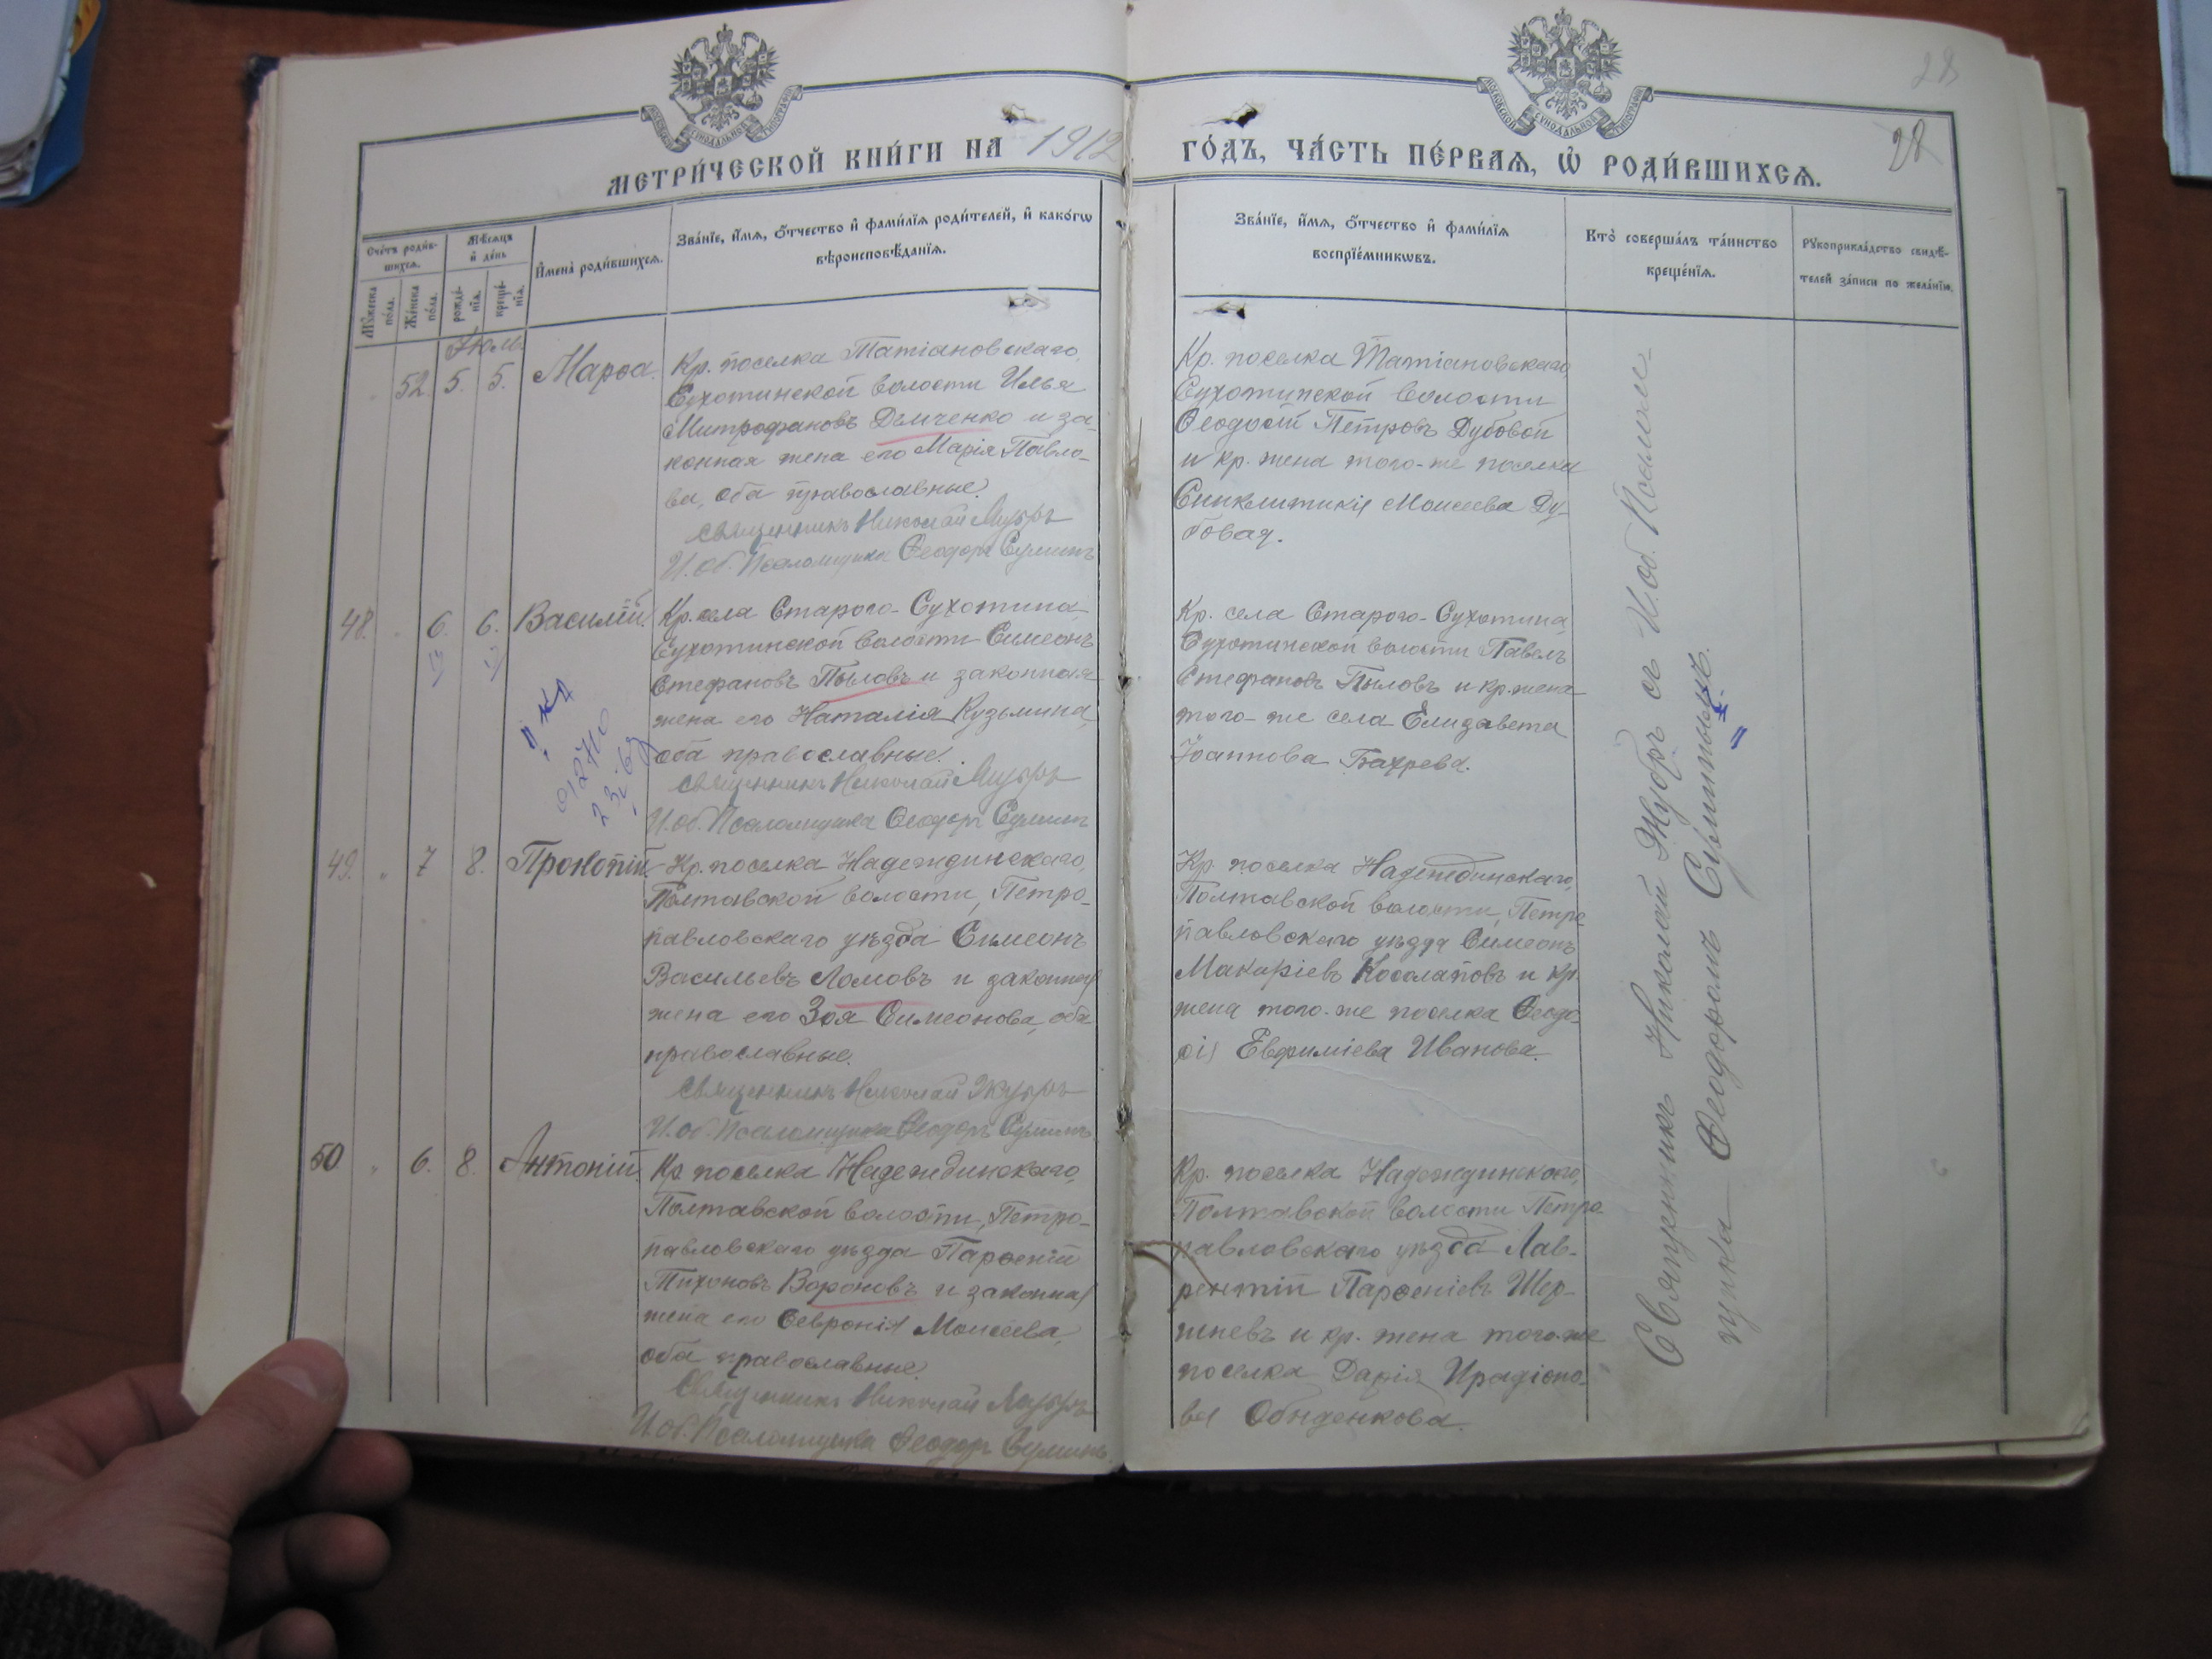 МОСКОВСКОЙ СѴНОДАЛЬНОЙ ТИПОГРАФІИ
МОСКОВСКОЙ СѴНОДАЛЬНОЙ ТИПОГРАФІИ
28
28
МЕТРИ́ЧЕСКОЙ КНИ́ГИ НА 1912 ГО́ДЪ, ЧА́СТЬ ПЕ́РВАѦ, Ѡ҆ РОДИ́ВШИХСѦ.
Сче́тъ роди́в-
шихсѧ.
Мѹ́жеска по́ла.
Же́нска по́ла.
Мѣ́сѧцъ
и҆ де́нь
рожде́-
нїѧ.
креще́-
нїѧ.
И҆мена̀ роди́вшихсѧ.
Зва́нїе, и҆́мѧ, ѻ҆́тчество и҆ фами́лїѧ роди́телей, и҆ како́гѡ
вѣроисповѣ́данїѧ.
Зва́нїе, и҆́мѧ, ѻ҆́тчество и҆ фами́лїѧ
воспрїе́мникѡвъ.
Кто̀ соверша́лъ та́инство
креще́нїѧ.
Рѹкоприкла́дство свидѣ́-
телей за́писи по жела́нїю.
Іюль
52. 5. 5. Марѳа.
Кр. поселка Татіановскаго,
Сухотинской волости Илья
Митрофановъ Демченко и за-
конная жена его Марія Павло-
ва, оба православные.
Священникъ Николай Жубръ
И. об. Псаломщика Ѳеодоръ Сулимъ
Кр. поселка Татіановскаго,
Сухотинской волости
Ѳеодосій Петровъ Дубовой
и кр. жена того-же поселка
Синклитикія Моисеева Ду-
бовая.
48. " 6. 6. Василій.
Кр. села Старого-Сухотина,
Сухотинской волости Симеонъ
Стефановъ Пыловъ и законная
жена его Наталія Кузьмина,
оба православные.
Священникъ Николай Жубръ
И. об. Псаломщика Ѳеодоръ Сулимъ
Кр. села Старого-Сухотина,
Сухотинской волости Павелъ
Стефановъ Пыловъ и кр. жена
того-же села Елизавета
Іоаннова Бахрева.
49. " 7 8. Прокопій.
Кр. поселка Надеждинскаго,
Полтавской волости, Петро-
павловскаго уѣзда Симеонъ
Васильевъ Ломовъ и законная
жена его Зоя Симеонова, оба
православные.
Священникъ Николай Жубръ
И. об. Псаломщика Ѳеодоръ Сулимъ
Кр. поселка Надеждинскаго,
Полтавской волости, Петро
павловскаго уѣзда Симеонъ
Макаріевъ Косолаповъ и кр.
жена того-же поселка Ѳеодо
сія Евфиміева Иванова.
50 " 6. 8. Антоній.
Кр. поселка Надеждинскаго,
Полтавской волости, Петро-
павловскаго уѣзда Парѳеній
Тихоновъ Вороновъ и законная
жена его Ѳевронія Моисеева,
оба православные.
Священникъ Николай Жубръ
И. об. Псаломщика Ѳеодоръ Сулимъ
Кр. поселка Надеждинскаго,
Полтавской волости Петро-
павловскаго уѣзда Лав-
рентій Парѳеніевъ Шер-
шневъ и кр. жена того-же
поселка Дарія Иродіоно-
ва Обыденкова.
Священникъ Николай Жубръ съ И. об. Псалом-
щика Ѳеодоромъ